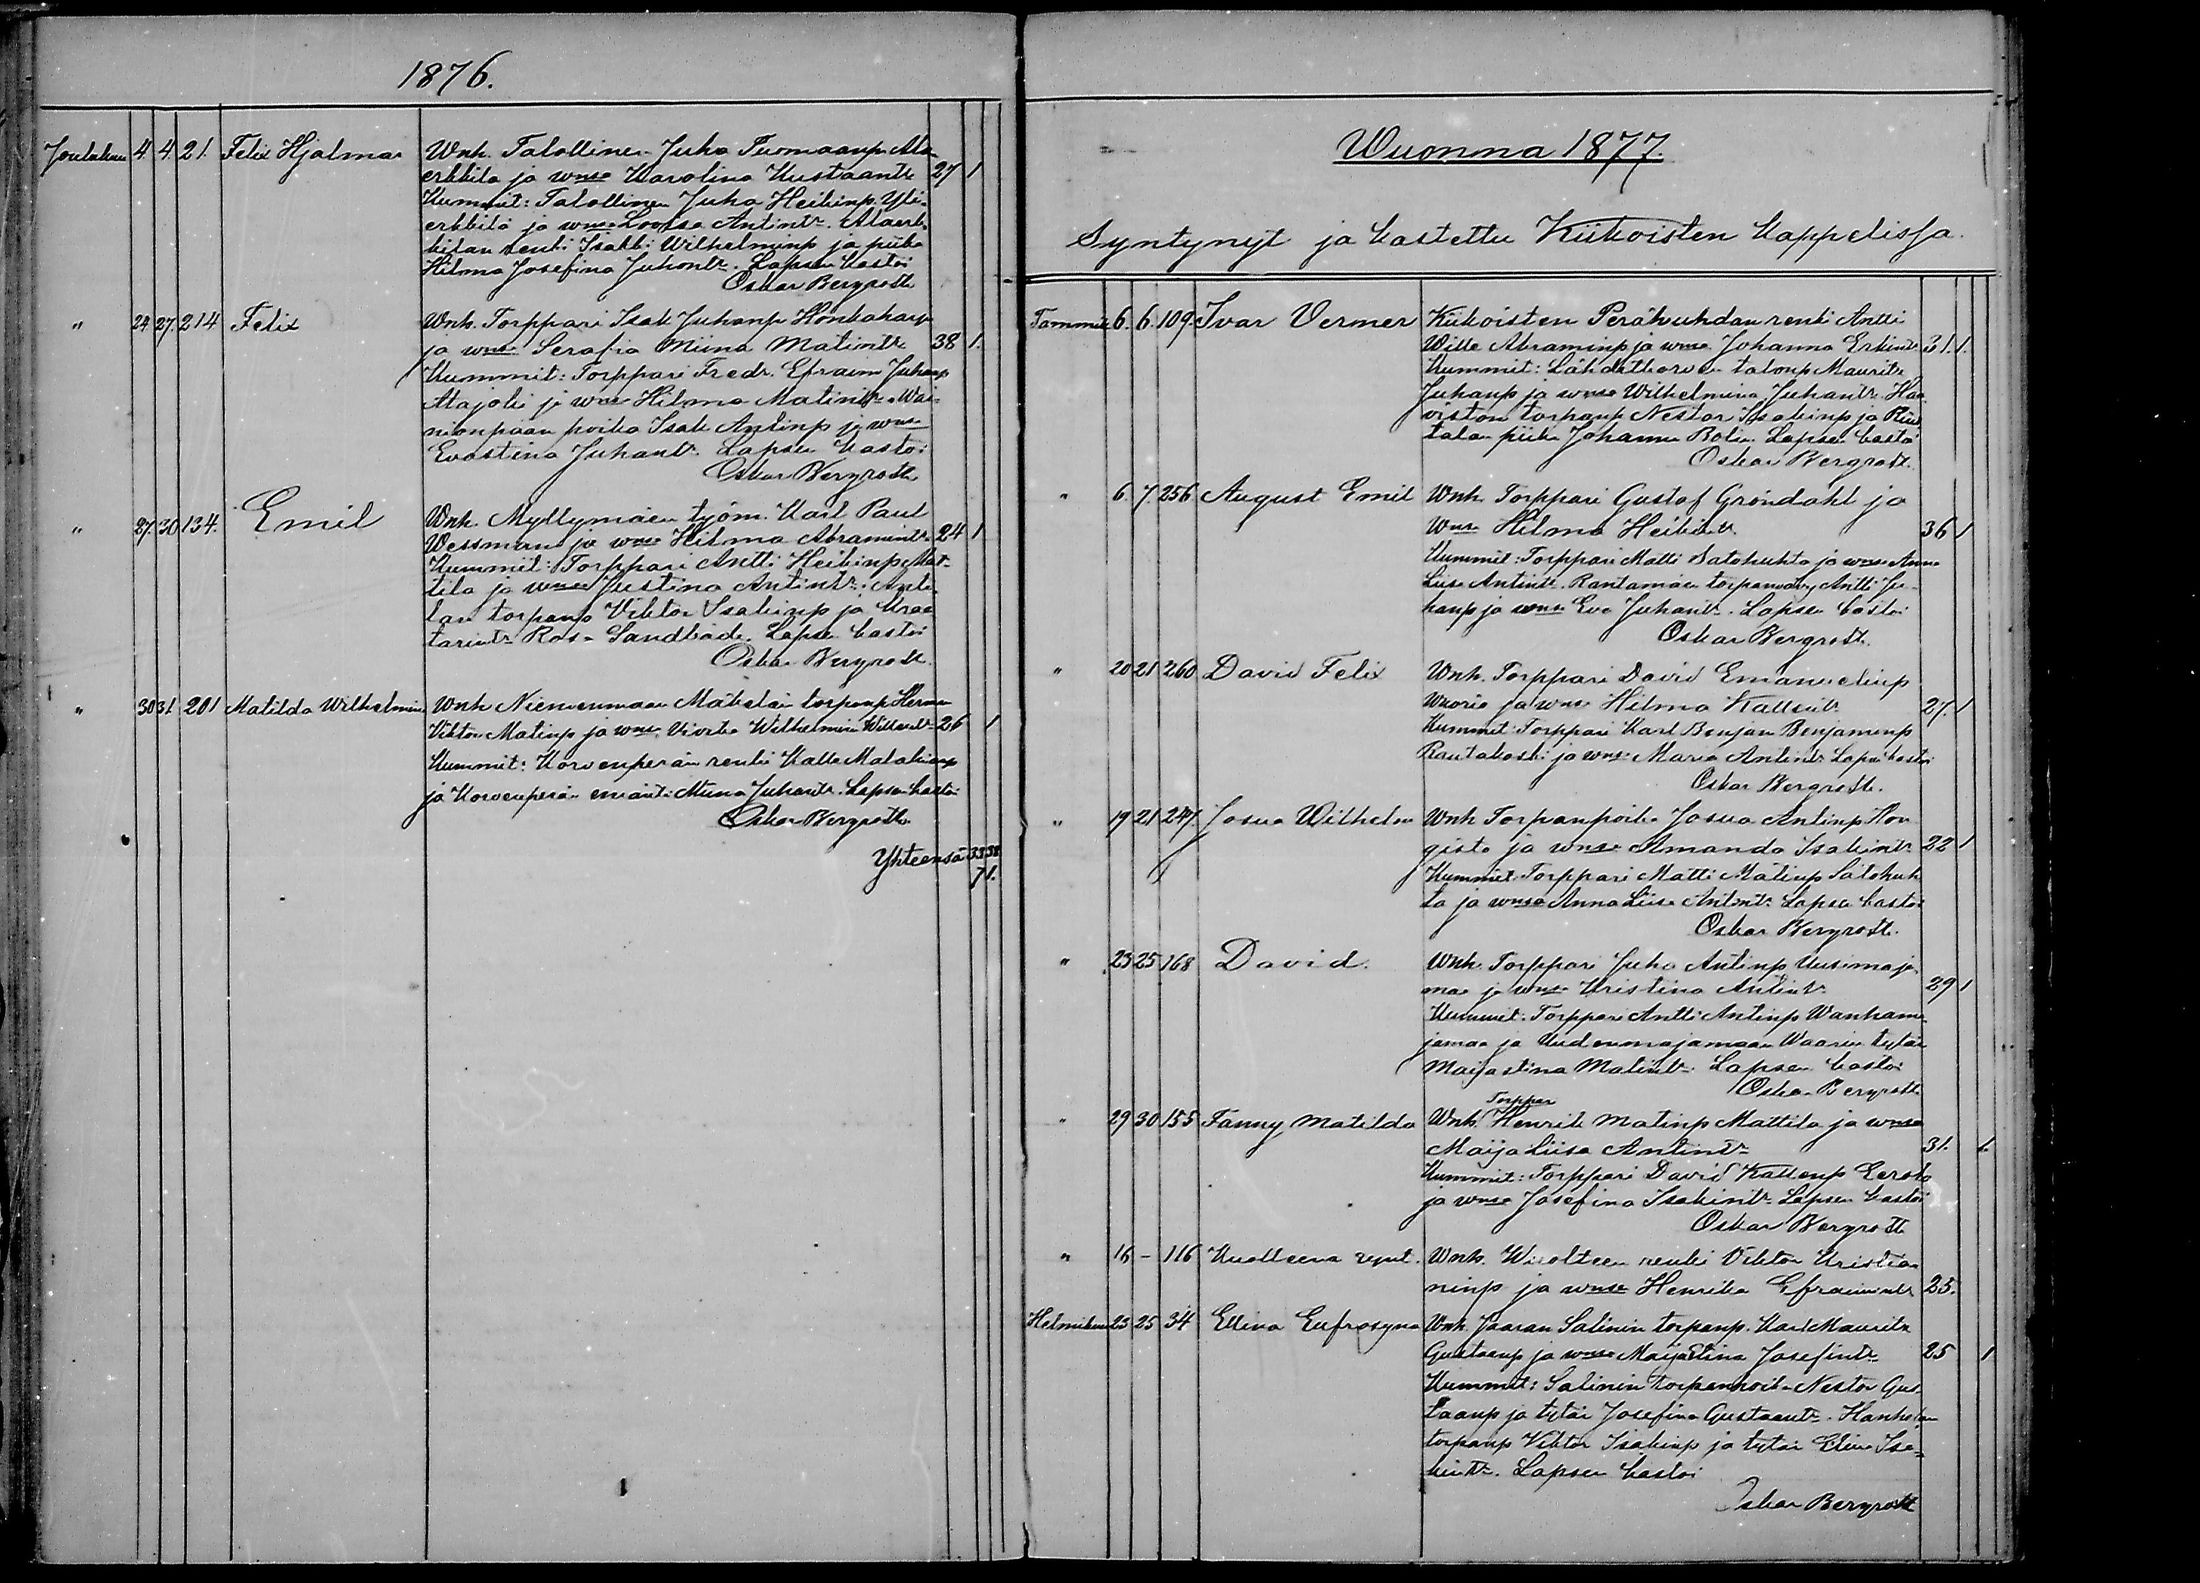 1876.
Joulukuu 4. 4. 21. Felix Hjalmar Wnh. Talollinen Juha Tuomaanp. Ala-
erkkila ja wmsa Karolina Kustaantr 27 1
Kummit: Talollinen Juha Heikinp. Yli-
erkkilä ja wmsa Lovisa Antintr. Alaerk-
kilan renki Isakki Wilhelminp ja piika
Hilma Josefina Juhontr. Lapsen kastoi
Oskar Bergroth
" 24 27. 214 Felix Wnh. Torppari Isak Juhanp Honkaharju
ja wmsa Serafia Miina Matintr 38 1.
Kummit: Torppari Fredr. Efraim Juhanp
Alajoki ja wmsa Hilma Matintr. Wai-
nionpään poika Isak Antinp ja wmsa
Evastina Juhantr. Lapsen kastoi
Oskar Bergroth
" 27. 30 134. Emil Wnh. Myllymäen työm. Karl Paul
Wessman ja wmsa Hilma Abramintr. 24 1
Kummit: Torppari Antti Heikinp Mat-
tila ja wmsa Justina Antintr. Antti-
lan torpanp Viktor Isakinp ja
Rosa Sandbäck. Lapsen kastoi
Oskar Bergroth.
" 30 31. 201 Matilda Wilhelmina Wnh Niemenmaan Mäkelän torpanp Herman
Viktor Matinp ja wmsa Wilhelmina 26 1
Kummit: Korvenperän renki Kalle
ja Korvenperän emäntä Miina Juhantr. Lapsen kastoi
Oskar Bergroth
Yhteensä 33 38
71.
Wuonna 1877.
Syntynyt ja kastettu Kiikoisten kappelissa.
Tammik 6. 6. 109. Ivar Verner Kiikoisten Peräkuhdan renki Antti
Wille Abraminp ja wmsa Johanna Erkintr 31. 1.
Kummit: Lähdekorven talonp Maurits
Juhanp ja wmsa Wilhelmina Juhantr. Haa-
viston torpanp Nestor Isakinp ja
talan piika Johanna Bolin. Lapsen kastoi
Oskar Bergroth.
" 6. 7. 256 August Emil Wnh. Torppari Gustaf Gröndahl ja
Wmsa Hilma Heikintr. 36 1
Kummit: Torppari Matti Satokuhta ja wmsa Anna
Liisa Antintr. Rantamäen torpanvävy Antti Ju-
hanp ja wmsa Eva Juhantr. Lapsen kastoi
Oskar Bergroth.
" 20 21 260 David Felix Wnh. Torppari David Emanuelinp
Wuorio ja wmsa Hilma Kallentr 27. 1
Kummit: Torppari Karl Benjam Benjaminp
Rautakoski ja wmsa Maria Antintr. Lapsen kastoi
Oskar Bergroth.
" 19 21 247. Josua Wilhelm Wnh Torpanpoika Josua Antinp Hon-
gisto ja wmsa Amanda Isakintr. 22 1
Kummit: Torppari Matti Matinp Satokuh-
ta ja wmsa Anna Liisa Antintr. Lapsen kastoi
Oskar Bergroth.
" 23 25 168 David. Wnh. Torppari Juha Antinp Uusimaja-
maa ja wmsa Kristina Antintr. 29 1
Kummit: Torppari Antti Antinp Wanhama-
jamaa ja Uudenmajamaan Waarin tytär
Maijastina Matintr. Lapsen kastoi
Oskar Bergroth
" 29 30 155 Fanny Matilda Wnh. Torppar Henrik Matinp Mattila ja wmsa
Maija Liisa Antintr. 31. 1.
Kummit: Torppari David Kallenp Eerola
ja wmsa Josefina Isakintr. Lapsen kastoi
Oskar Bergroth
" 16 - 116 Kuolleena synt. Wnh. renki Viktor Kristia-
ninp ja wmsa Henrika Efraimintr 25.
Helmikuu 23 25 34 Ellina Eufrosyna Wnh. Jaaran Salinin torpanp. Karl Maurits
Gustaanp ja wmsa Maijastina Josefintr. 25 1
Kummit: Salinin torpanpoika Nestor Gus-
taanp ja tytär Josefina Gustaantr. Hanholan
torpanp Viktor Isakinp ja tytär Elina Isa-
kintr. Lapsen kastoi
Oskar Bergroth